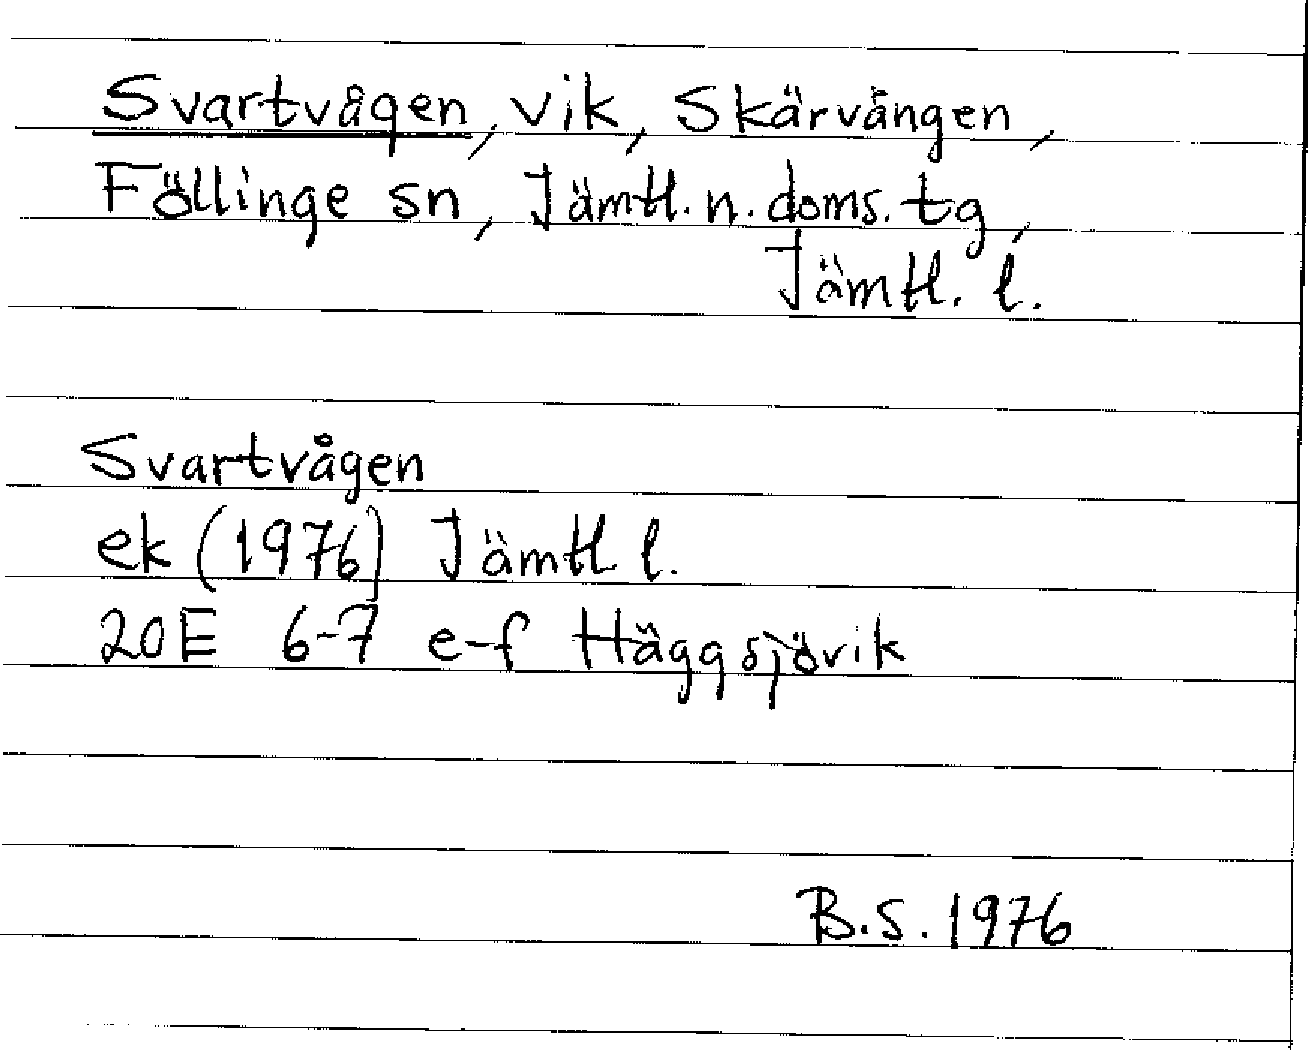 Svartvågen, vik, Skärvången,
Föllinge sn, Jämtl. n. doms. tg,
Jämtl. l.
Svartvågen
ek (1976) Jämtl l.
20E 6-7 e-f Häggsjövik
B.S. 1976